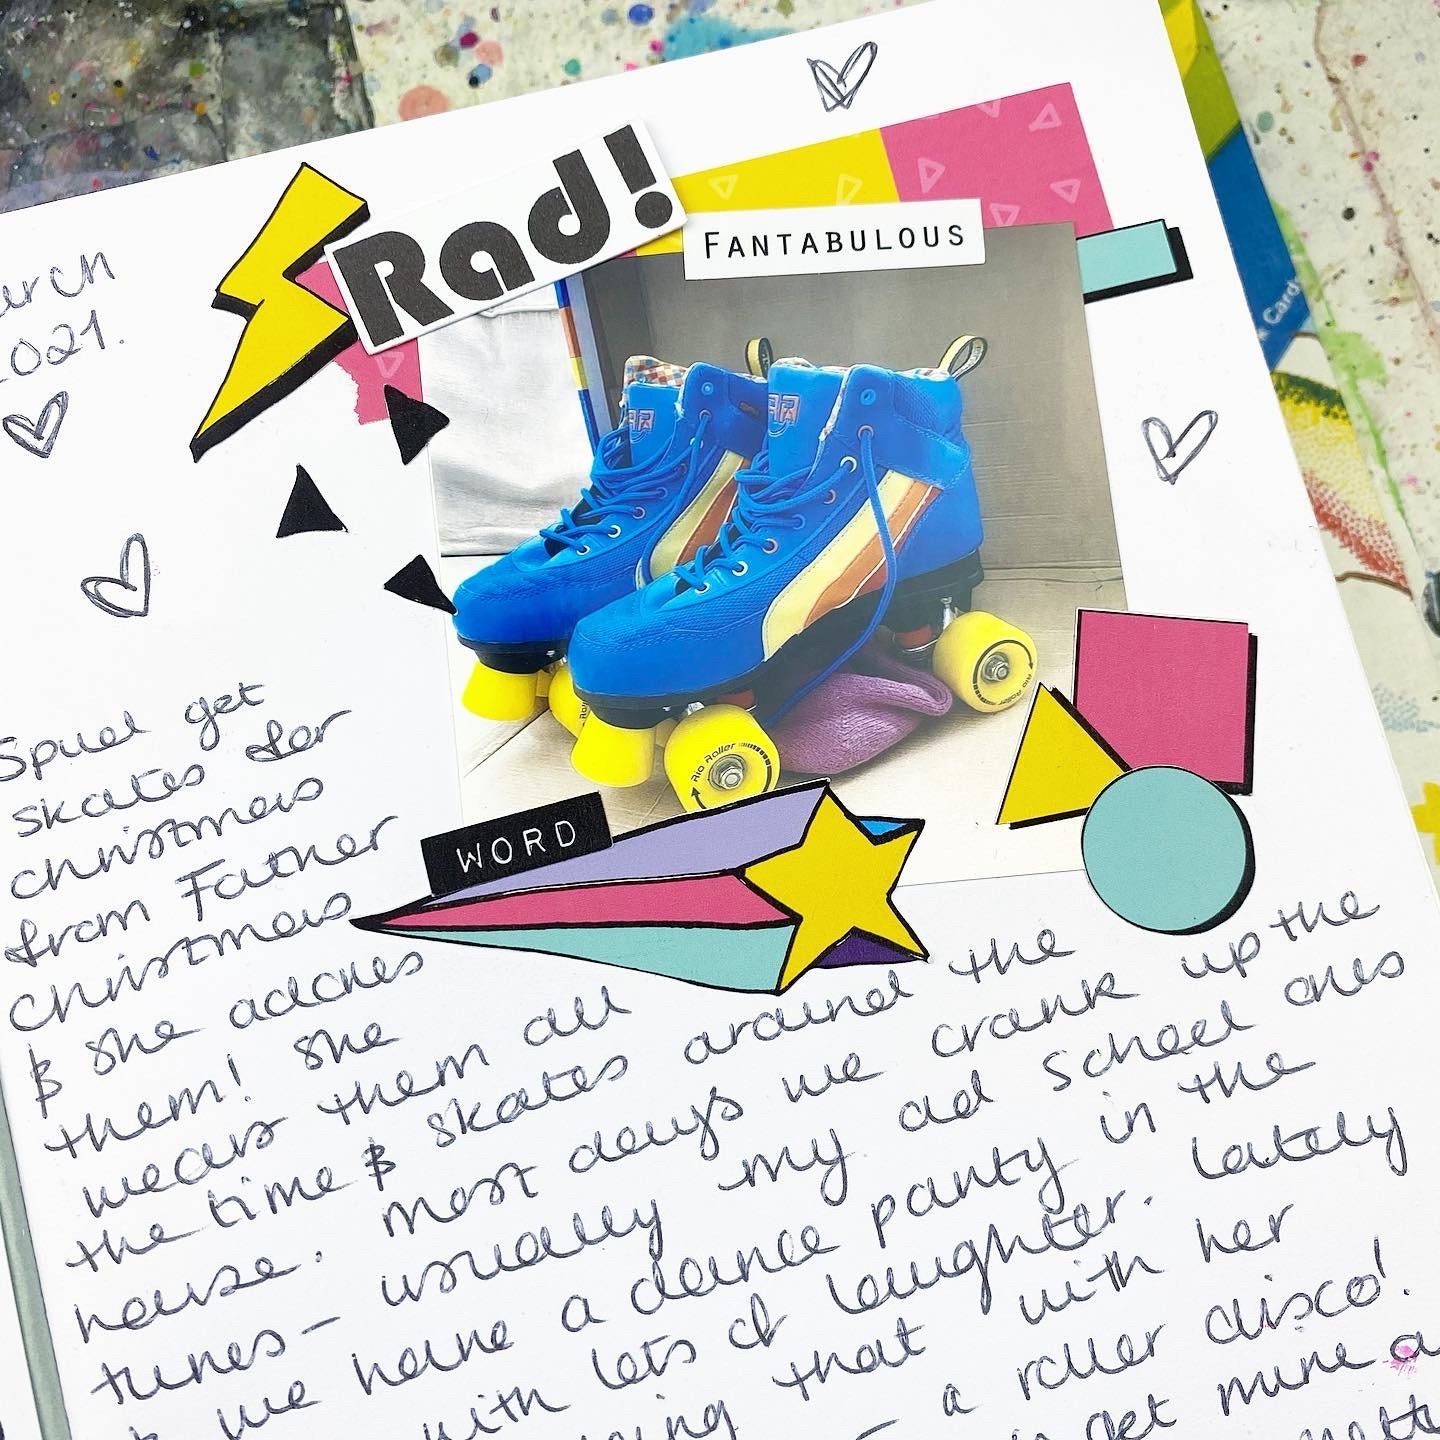 Rad!
FANTABULOUS
2021.
WORD
Rio Roller
Rio Roller
Card
Spud get
skates for
christmas
from Father
christmas
& she adores
them! She
wears them all
the time & skates around the
house. Most days we crank up the
tunes - usually my old school ones
& we have a dance party in the
with lots of laughter. Lately
that with her
- a roller disco!
get mine a